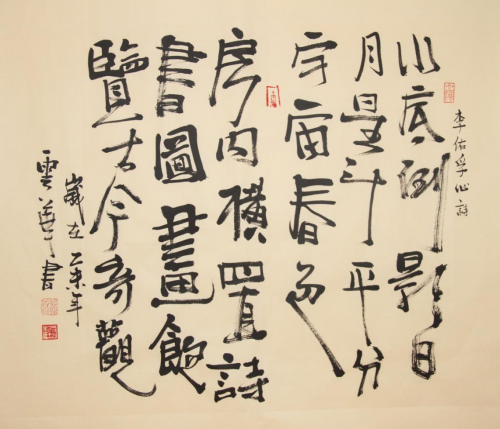 李佑孚心
水底倒影日
月星斗平分
宇宙春色
房内横置詩
書圖畫飽
覽古今奇觀
歲在乙未年
雲華書